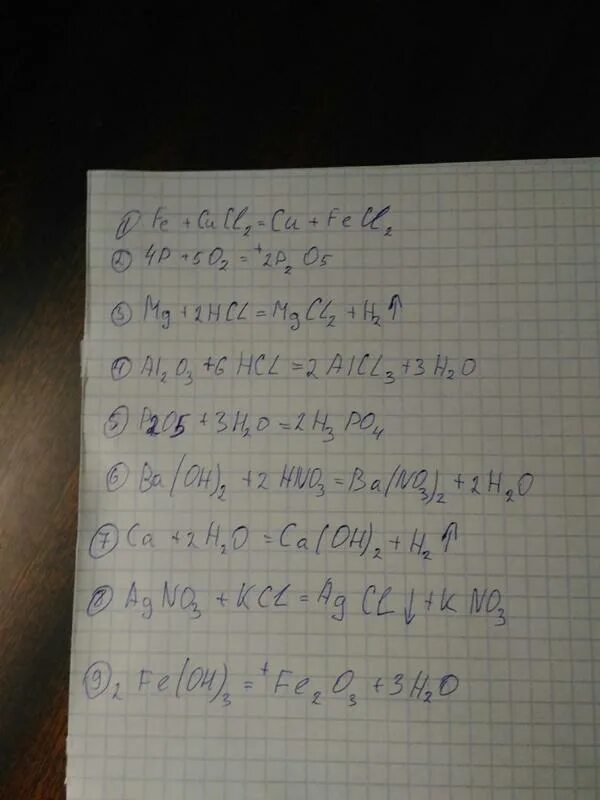 ① Fe + CuCl₂ = Cu + FeCl₂
② 4P + 5O₂ =ᵗ 2P₂O5
③ Mg + 2HCl = MgCl₂ + H₂↑
④ Al₂O₃ + 6HCl = 2AlCl₃ + 3H₂O
⑤ P2O5 + 3H₂O = 2H₃PO₄
⑥ Ba(OH)₂ + 2HNO₃ = Ba(NO₃)₂ + 2H₂O
⑦ Ca + 2H₂O = Ca(OH)₂ + H₂↑
⑧ AgNO₃ + KCl = AgCl↓ + KNO₃
⑨ 2Fe(OH)₃ =ᵗ Fe₂O₃ + 3H₂O